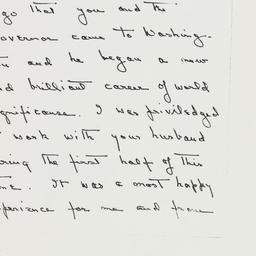 go that you and the
overnor came to Washing-
n and he began a new
nd brilliant career of world
gnificance. I was priviledged
work with your husband
ring the first half of this
me. It was a most happy
perience for me and from